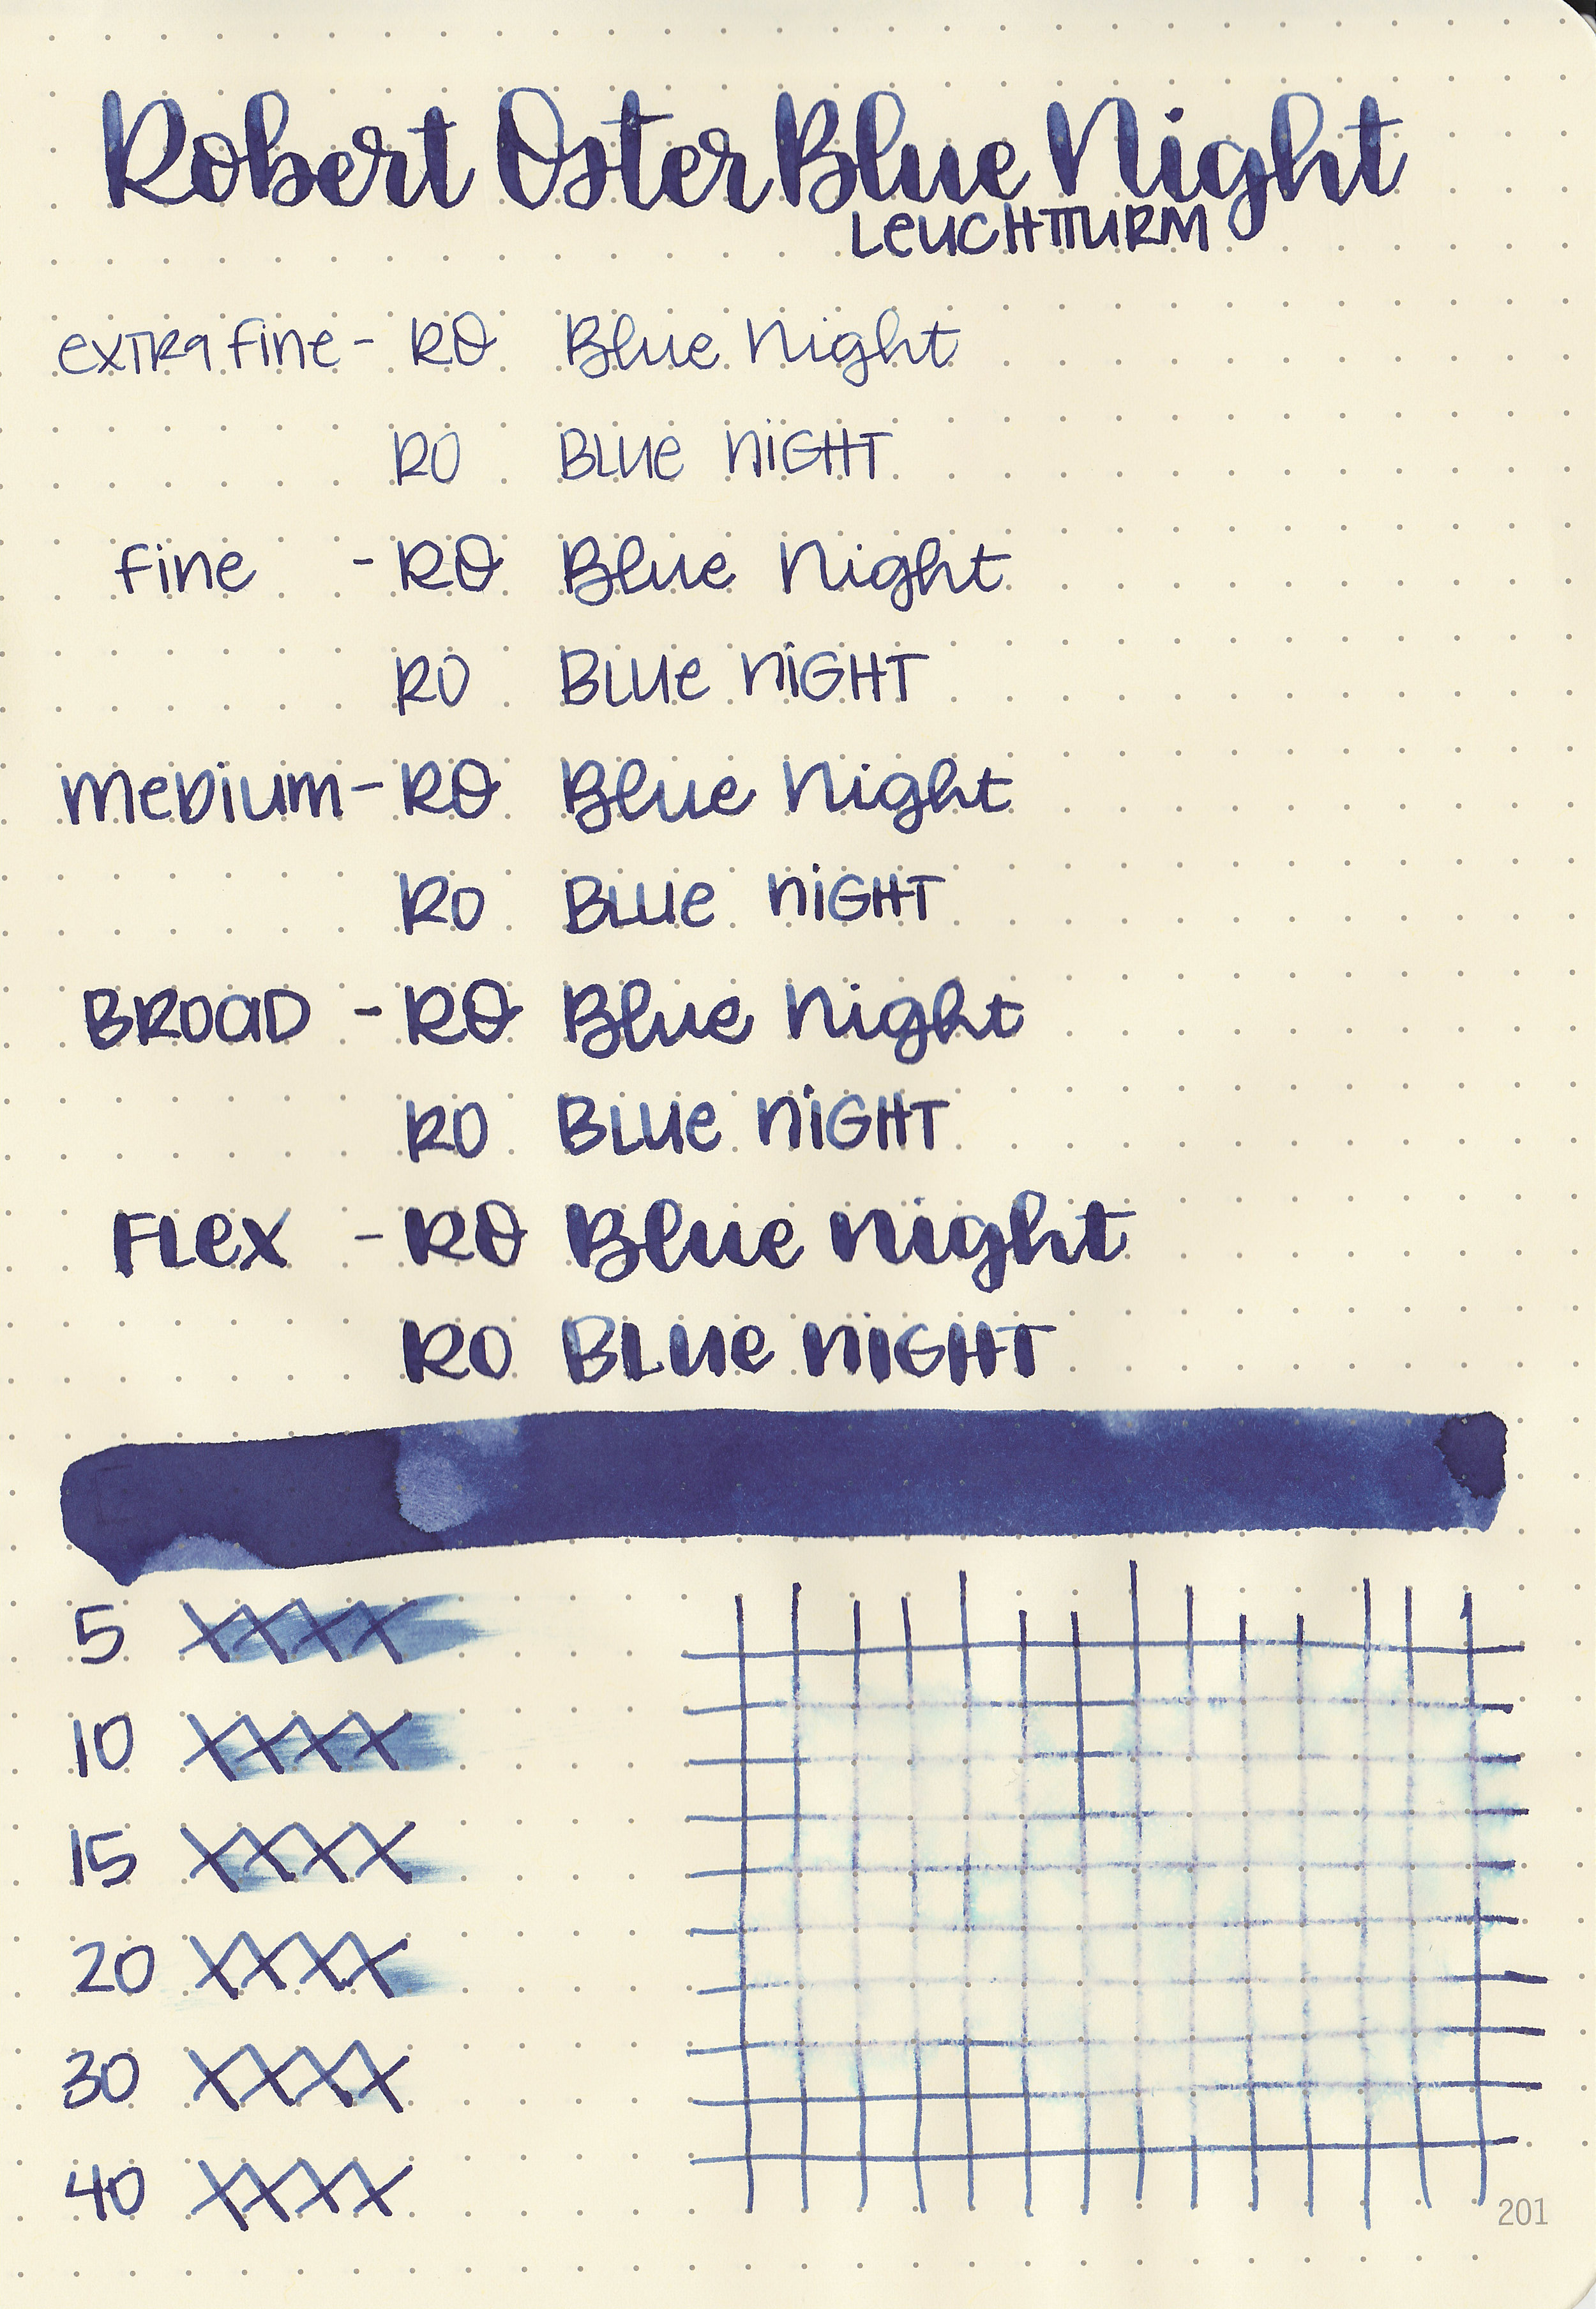 Robert Oster Blue Night
LEUCHTTURM
extra fine - RO Blue Night
RO BLUe NiGHT
fine - RO Blue Night
RO BLUe NiGHT
meDium - RO Blue Night
RO BLUe NiGHT
BROaD - RO Blue Night
RO BLUe NiGHT
FLex - RO Blue Night
RO BLUe NIGHT
5 XXXX
10 XXXX
15 XXXX
20 XXXX
30 XXXX
40 XXXX
201